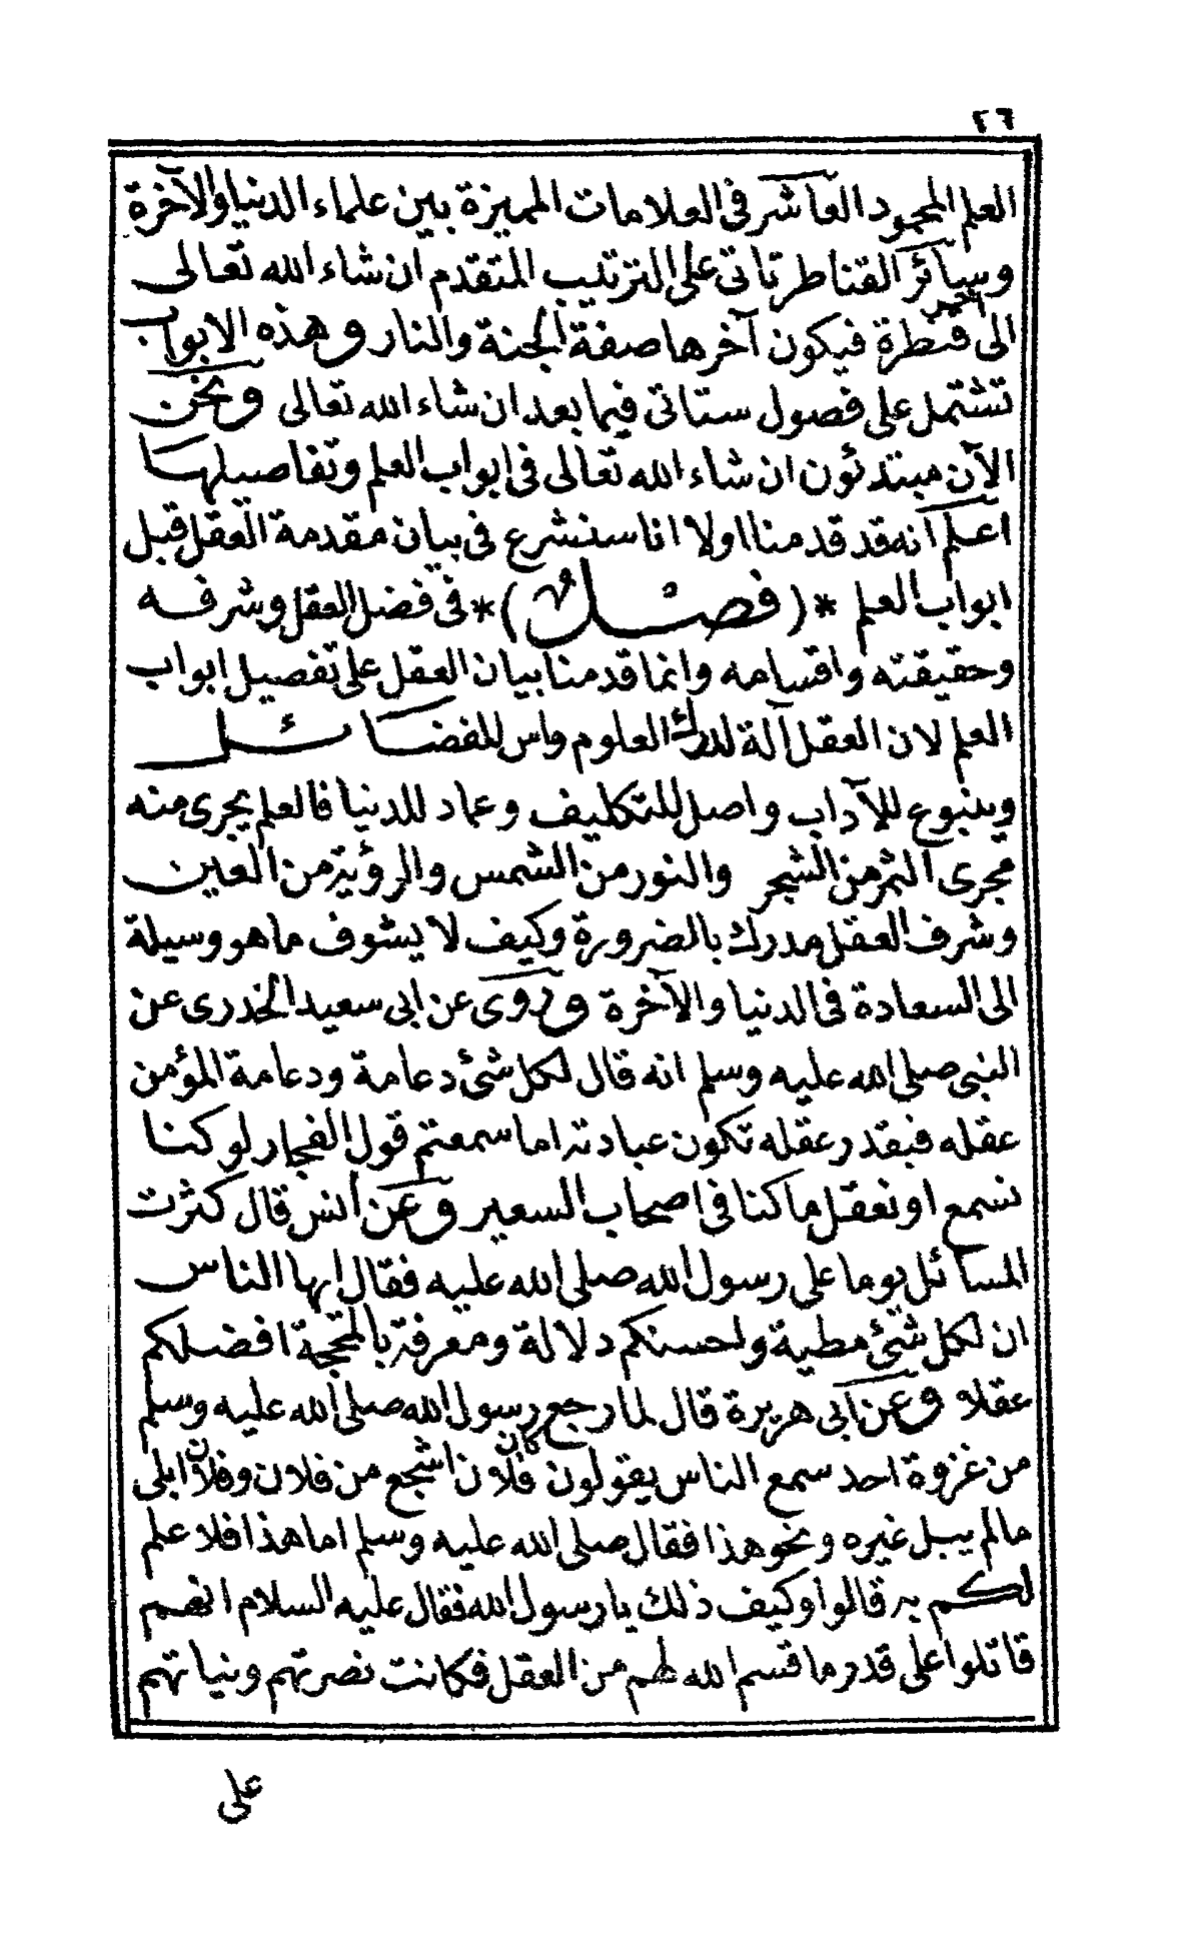 ٢٦
العلم المحمود العاشر فى العلامات المميزة بين علماء الدنيا والآخرة
وسائر القناطر تاتى على الترتيب المتقدم ان شاء الله تعالى
الى آخر قنطرة فيكون آخرها صفة الجنة والنار وهذه الابواب
تشتمل على فصول ستاتى فيما بعد ان شاء الله تعالى ونحن
الآن مبتدئون ان شاء الله تعالى فى ابواب العلم وتفاصيلها
اعلم انه قد قدمنا اولا انا سنشرع فى بيان مقدمة العقل قبل
ابواب العلم *(فصل)* فى فضل العقل وشرفه
وحقيقته واقسامه وانما قدمنا بيان العقل على تفصيل ابواب
العلم لان العقل آلة لدرك العلوم واس للفضائل
وينبوع للآداب واصل للتكليف وعماد للدنيا فالعلم يجرى منه
مجرى الثمر من الشجر والنور من الشمس والرؤية من العين
وشرف العقل مدرك بالضرورة وكيف لا يشوف ما هو وسيلة
الى السعادة فى الدنيا والآخرة وروى عن ابى سعيد الخدرى عن
النبى صلى الله عليه وسلم انه قال لكل شئ دعامة ودعامة المؤمن
عقله فبقدر عقله تكون عبادته اما سمعتم قول الفجار لو كنا
نسمع او نعقل ما كنا فى اصحاب السعير وعن انس قال كثرت
المسائل يوما على رسول الله صلى الله عليه فقال ايها الناس
ان لكل شئ مطية ولحسنكم دلالة ومعرفة بالمحجة افضلكم
عقلا وعن ابى هريرة قال لما رجع رسول الله صلى الله عليه وسلم
من غزوة احد سمع الناس يقولون كان فلان اشجع من فلان وفلان ابلى
ما لم يبل غيره ونحو هذا فقال صلى الله عليه وسلم اما هذا فلا علم
لكم به قالوا وكيف ذلك يا رسول الله فقال عليه السلام انهم
قاتلوا على قدر ما قسم الله لهم من العقل فكانت نصرتهم ونياتهم
على